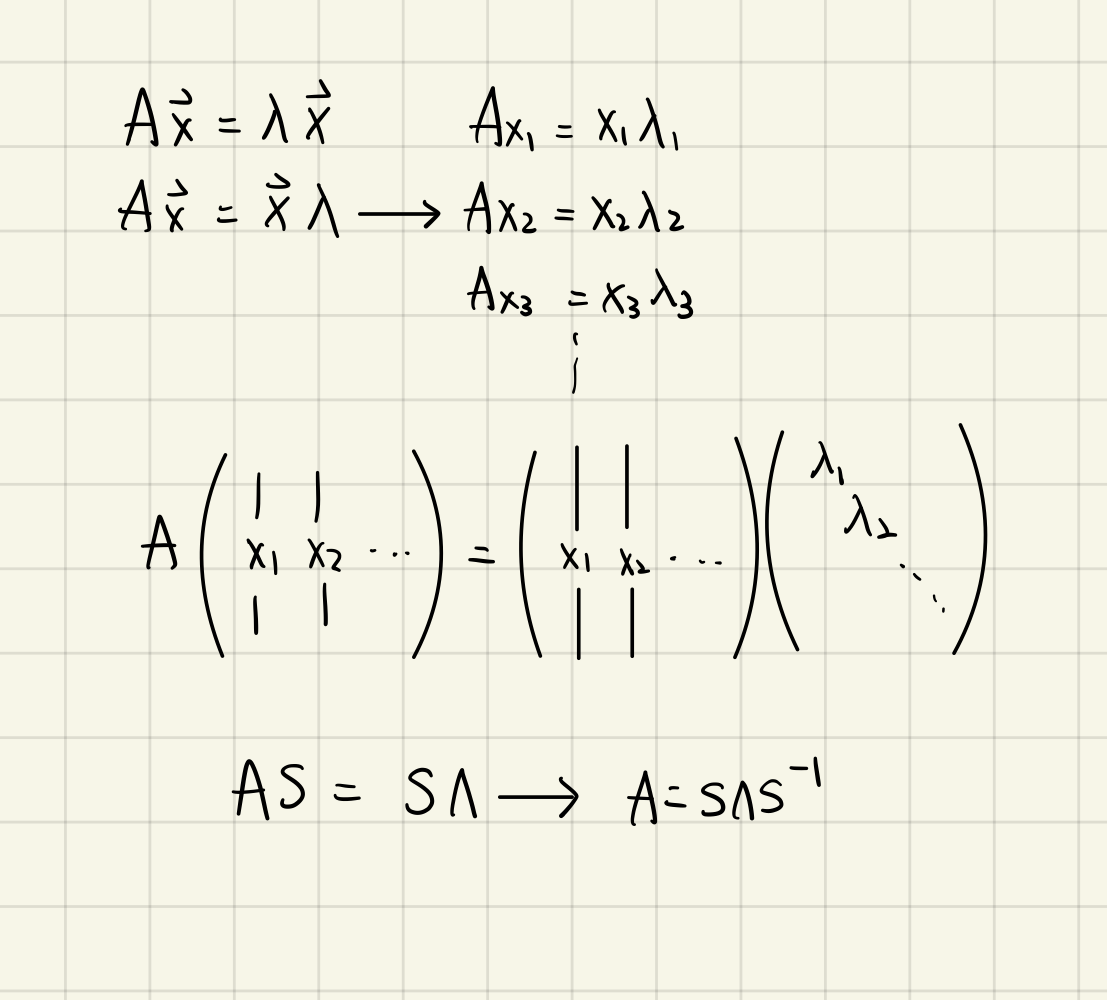 A x⃗ = λ x⃗    Ax₁ = x₁λ₁
A x⃗ = x⃗ λ ⟶ Ax₂ = x₂λ₂
Ax₃ = x₃λ₃
⋮
A ( x₁ x₂ ⋯ ) = ( x₁ x₂ ⋯ ) ( λ₁ λ₂ ⋱ )
AS = SΛ ⟶ A = SΛS⁻¹